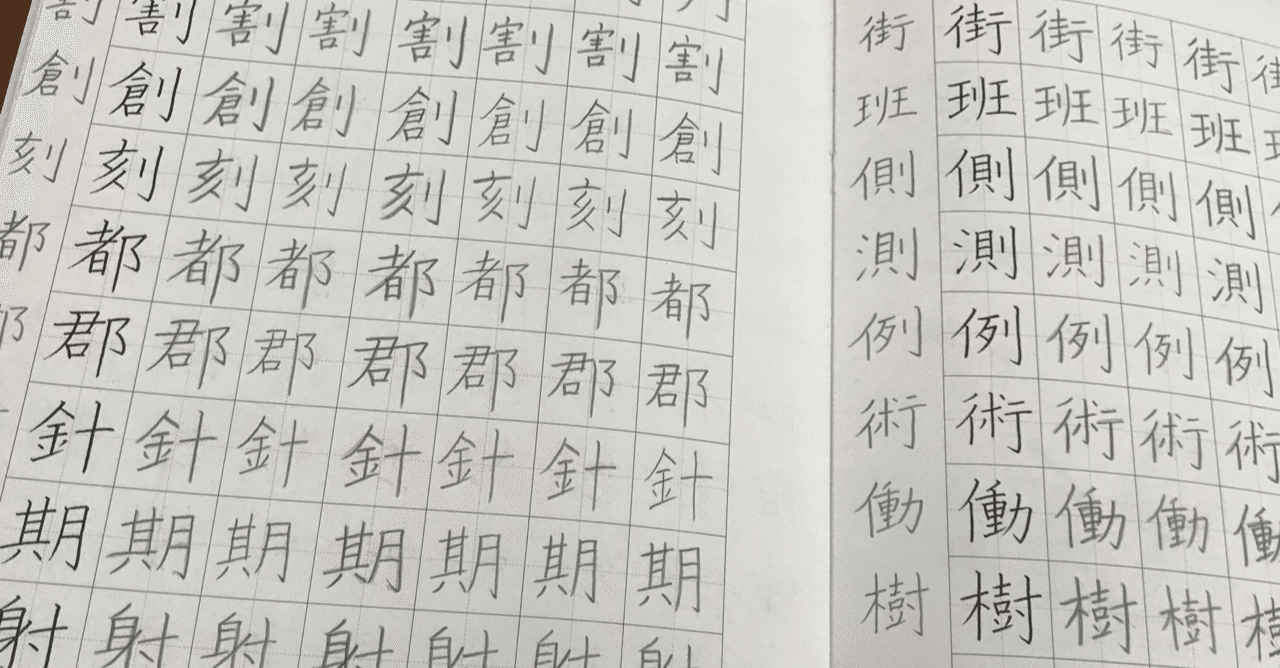 割割割割割割割割
創創創創創創創創
刻刻刻刻刻刻刻刻
都都都都都都都都
郡郡郡郡郡郡郡
針針針針針針針
期期期期期期期
射射射射射射射
街街街街街
班班班班班
側側側側側
測測測測測
例例例例例
術術術術術
働働働働働
樹樹樹樹